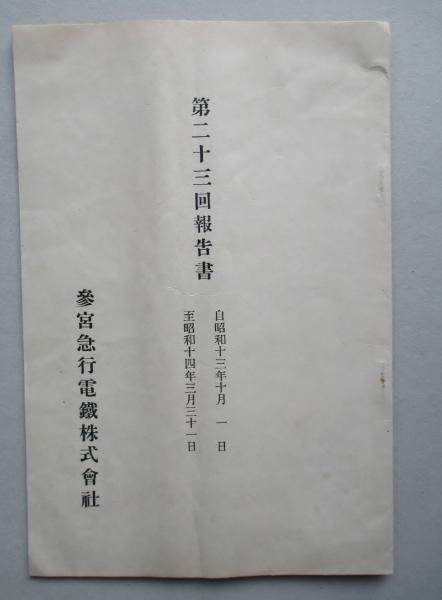 第二十三回報告書
自昭和十三年十月 一 日
至昭和十四年三月三十一日
參宮急行電鐵株式會社